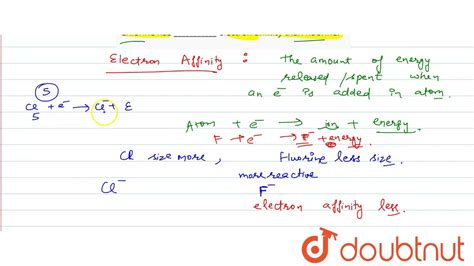 Electron Affinity : the amount of energy
released/spent when
an e⁻ is added in atom.
5
Cl + e⁻ → Cl⁻ + E
5
Atom + e⁻ → ion + energy.
F + e⁻ → F⁻ + energy.
Cl size more, Fluorine less size.
more reactive
Cl⁻ F⁻
electron affinity less.
doubtnut